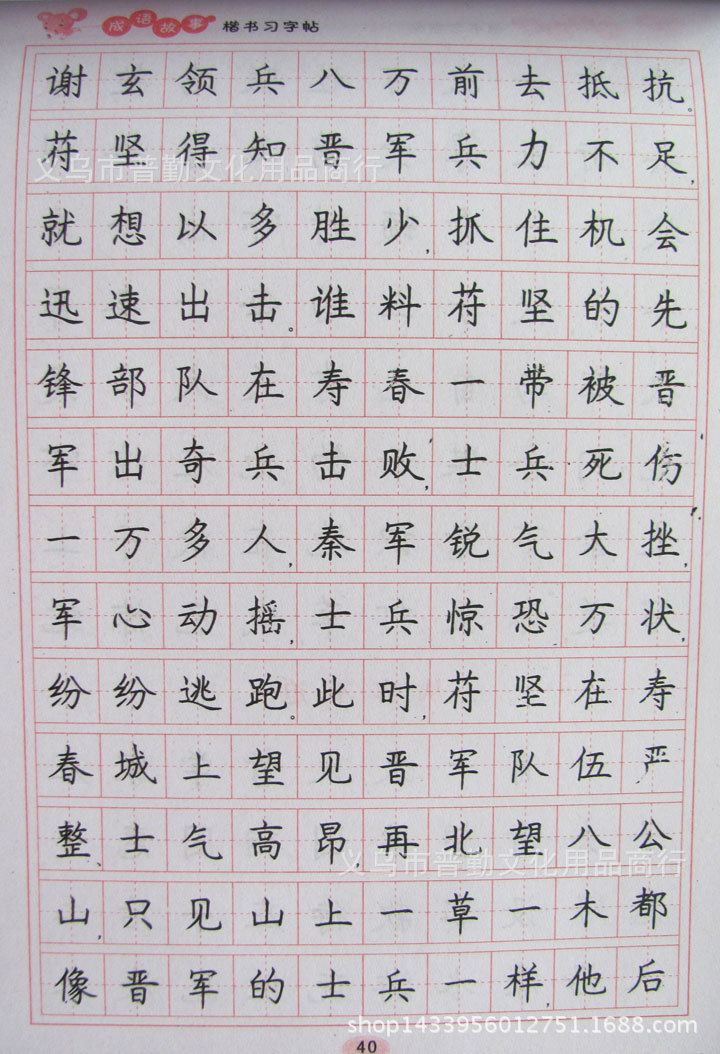 成语故事 楷书习字帖
谢玄领兵八万前去抵抗。
苻坚得知晋军兵力不足,
义乌市普勤文化用品商行
就想以多胜少,抓住机会
迅速出击。谁料苻坚的先
锋部队在寿春一带被晋
军出奇兵击败,士兵死伤
一万多人,秦军锐气大挫,
军心动摇,士兵惊恐万状,
纷纷逃跑。此时,苻坚在寿
春城上望见晋军队伍严
整、士气高昂,再北望八公
义乌市普勤文化用品商行
山,只见山上一草一木都
像晋军的士兵一样,他后
shop1433956012751.1688.com
40